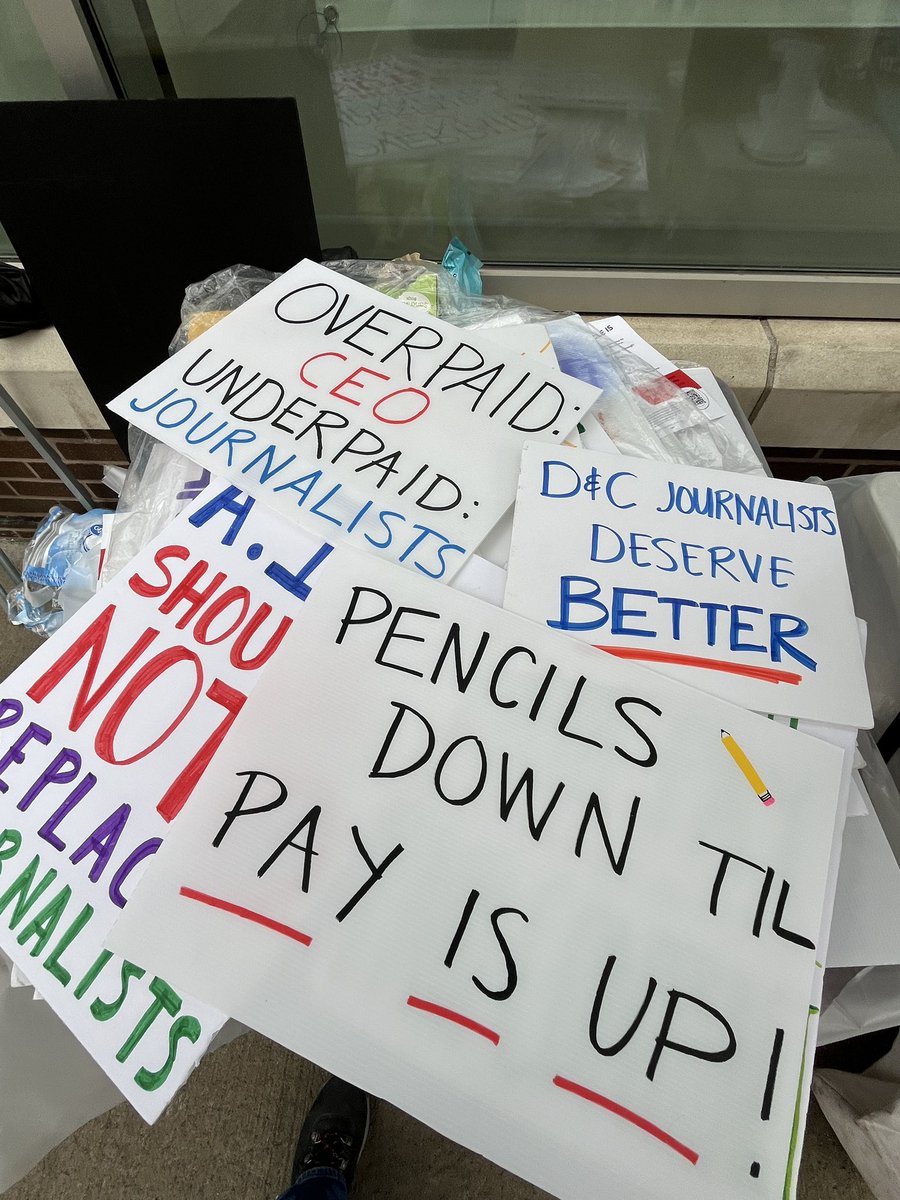 OVERPAID:
CEO
UNDERPAID:
JOURNALISTS
D&C JOURNALISTS
DESERVE
BETTER
A.I
SHOU
NOT
REPLAC
RNALISTS
PENCILS
DOWN TIL
PAY IS UP!